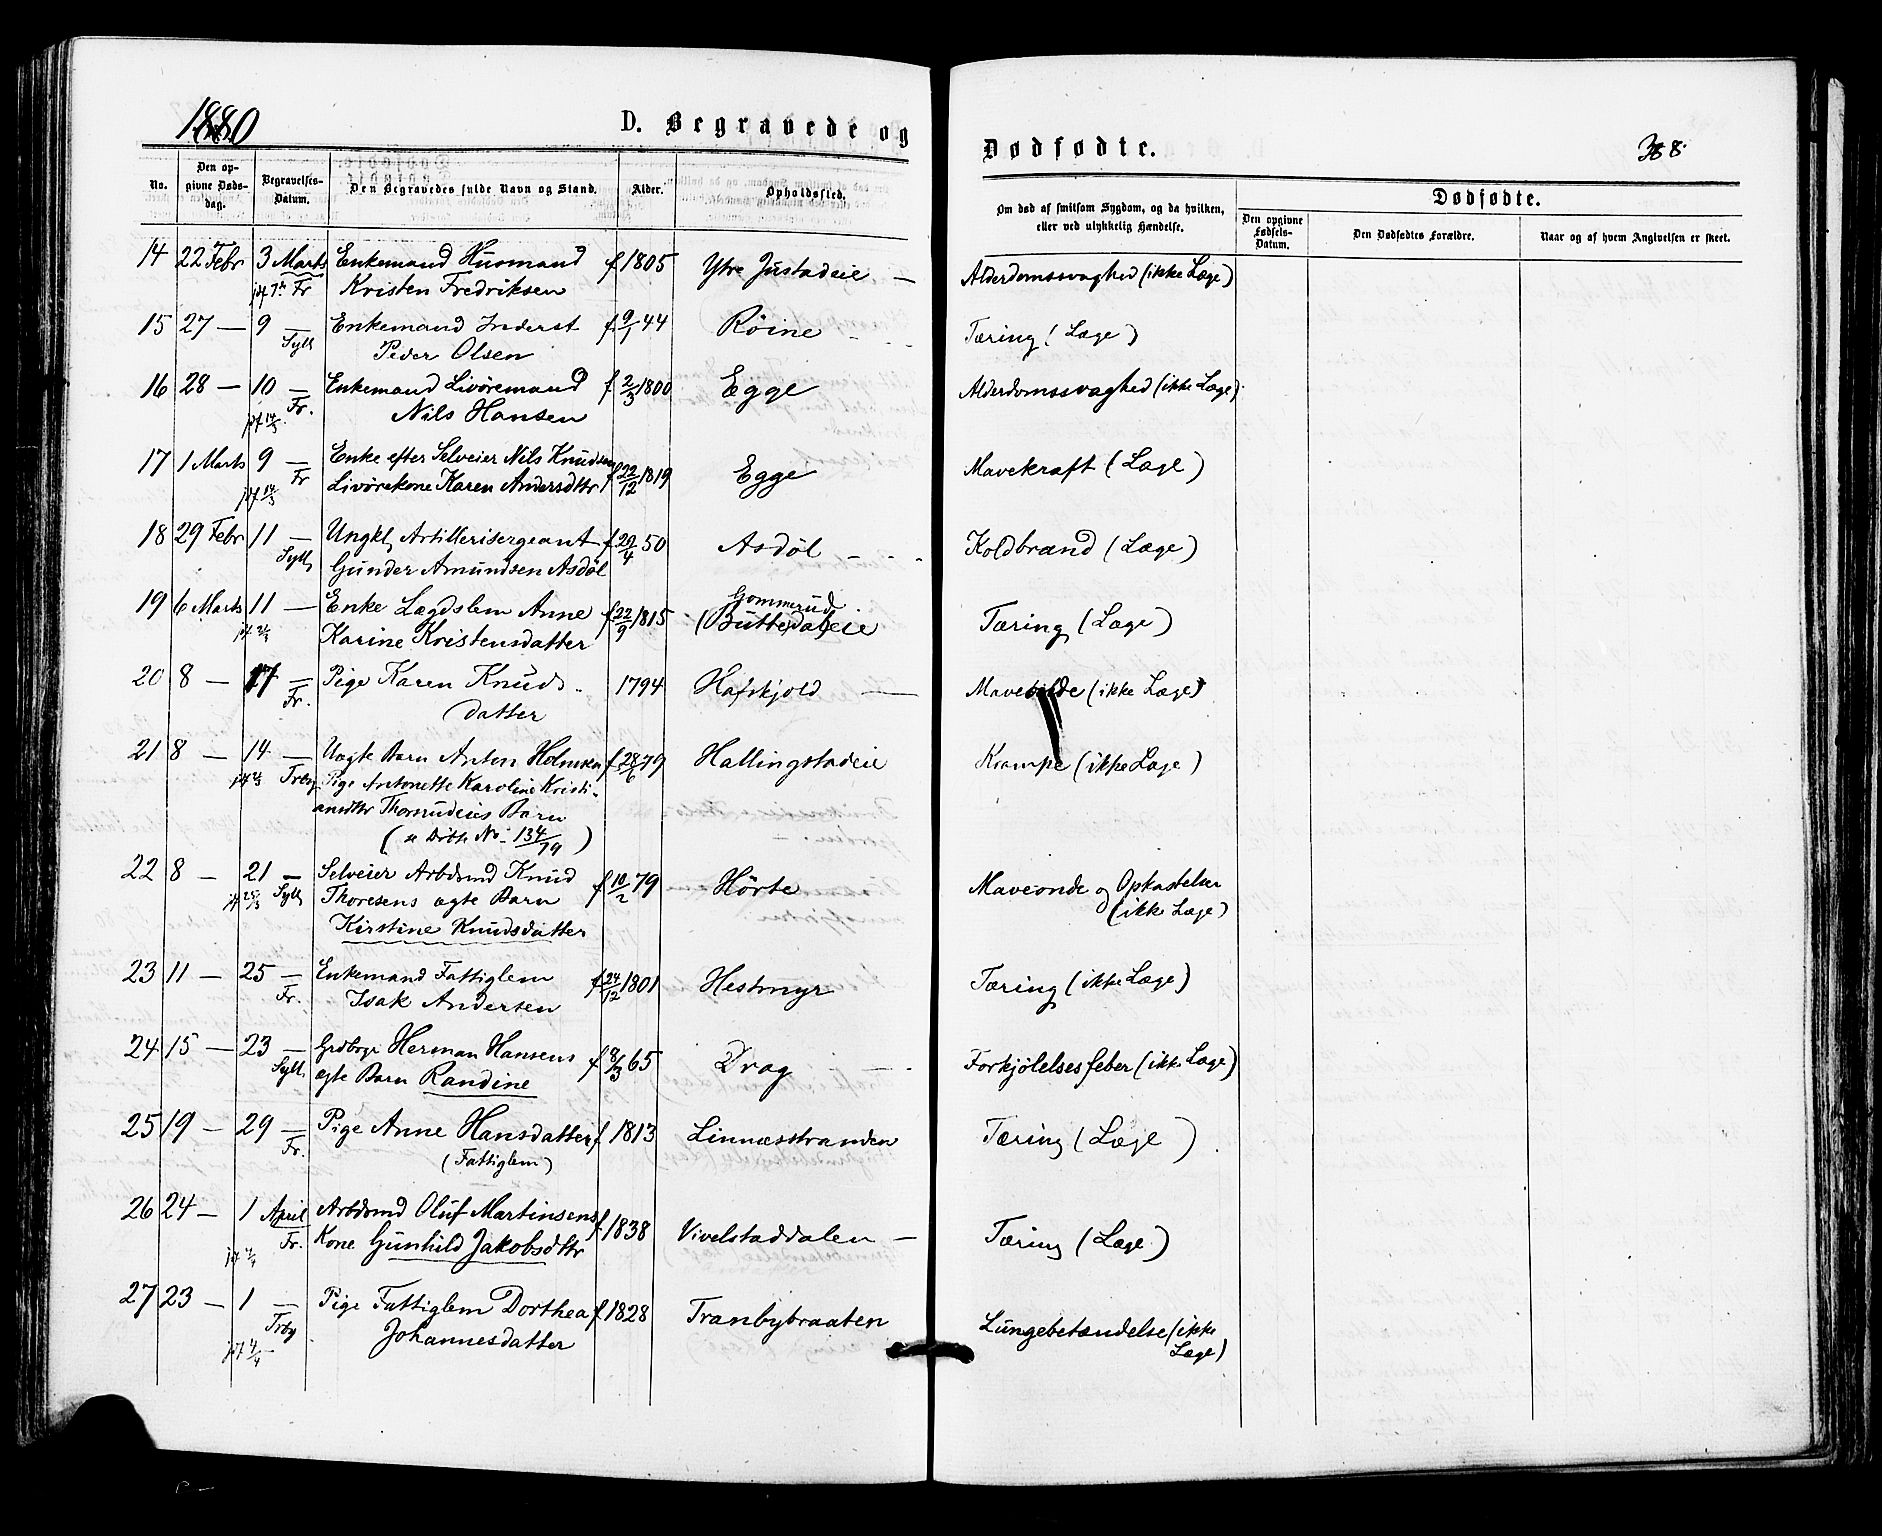 1880
D. Begravede og
Dødfødte.
388.
No.
Den op-
givne Døds-
dag.
Begravelses-
Datum.
Den Begravedes fulde Navn og Stand.
Alder.
Opholdssted.
Om død af smitsom Sygdom, og da hvilken,
eller ved ulykkelig Hændelse.
Dødfødte.
Den opgivne
Fødsels-
Datum.
Den Dødfødtes Forældre.
Naar og af hvem Angivelsen er skeet.
14 22 Febr 3 Marts Enkemand Husmand f 1805 Ytre Justadeie — Alderdomssvaghed (ikke Læge)
jf 7/3 Fr Kristen Fredriksen
15 27 — 9 — Enkemand Inderst f 9/1 44 Röine Tæring (Læge)
Syll Peder Olsen
16 28 — 10 — Enkemand Livöremand f 2/3 1800 Egge Alderdomssvaghed (ikke Læge)
jf 14/3 Fr. Nils Hansen
17 1 Marts 9 — Enke efter Selveier Nils Knudsen
jf 14/3 Fr Livörekone Karen Andersdttr f 22/12 1819 Egge Mavekræft (Læge)
18 29 Febr 11 — Ungkl, Artillerisergeant f 29/4 50 Asdöl — Koldbrand (Læge)
Syll, Gunder Amundsen Asdöl
19 6 Marts 11 — Enke Lægdslem Anne f 22/9 1815 Gommerud
Karine Kristensdatter (Buttedal)eie Tæring (Læge)
20 8 — 17 — Pige Karen Knuds- 1794 Hafskjold — (ikke Læge)
Fr. datter
21 8 — 14 — Uægte Barn Anton Holmsen f 28/6 79 Hallingstadeie Krampe (ikke Læge)
Trby Pige Antonette Karoline Kristi-
ansdttr Thorrudeies Barn
(se Döbte No. 134/79)
22 8 — 21 — Selveier Arbdsmd Knud f 10/2 79 Hörte Maveonde og Opkastelser
Syll Thoresens ægte Barn (ikke Læge)
Kirstine Knudsdatter
23 11 — 25 — Enkemand Fattiglem f 24/12 1801 Hestmyr Tæring (ikke Læge)
Fr. Isak Andersen
24 15 — 23 — Grdbrgr Herman Hansens f 8/3 65 Drag — Forkjölelsesfeber (ikke Læge)
Syll. ægte Barn Randine
25 19 — 29 — Pige Anne Hansdatter f 1813 Linnæsstranden Tæring (Læge)
Fr. (Fattiglem)
26 24 — 1 April Arbdsmd Oluf Martinsens f 1838 Vivelstaddalen — Tæring (Læge)
Fr. Kone Gunhild Jakobsdttr
27 23 — 1 — Pige Fattiglem Dorthea f. 1828 Tranbybraaten Lungebetændelse (ikke
jf 4/4 Trby Johannesdatter Læge)